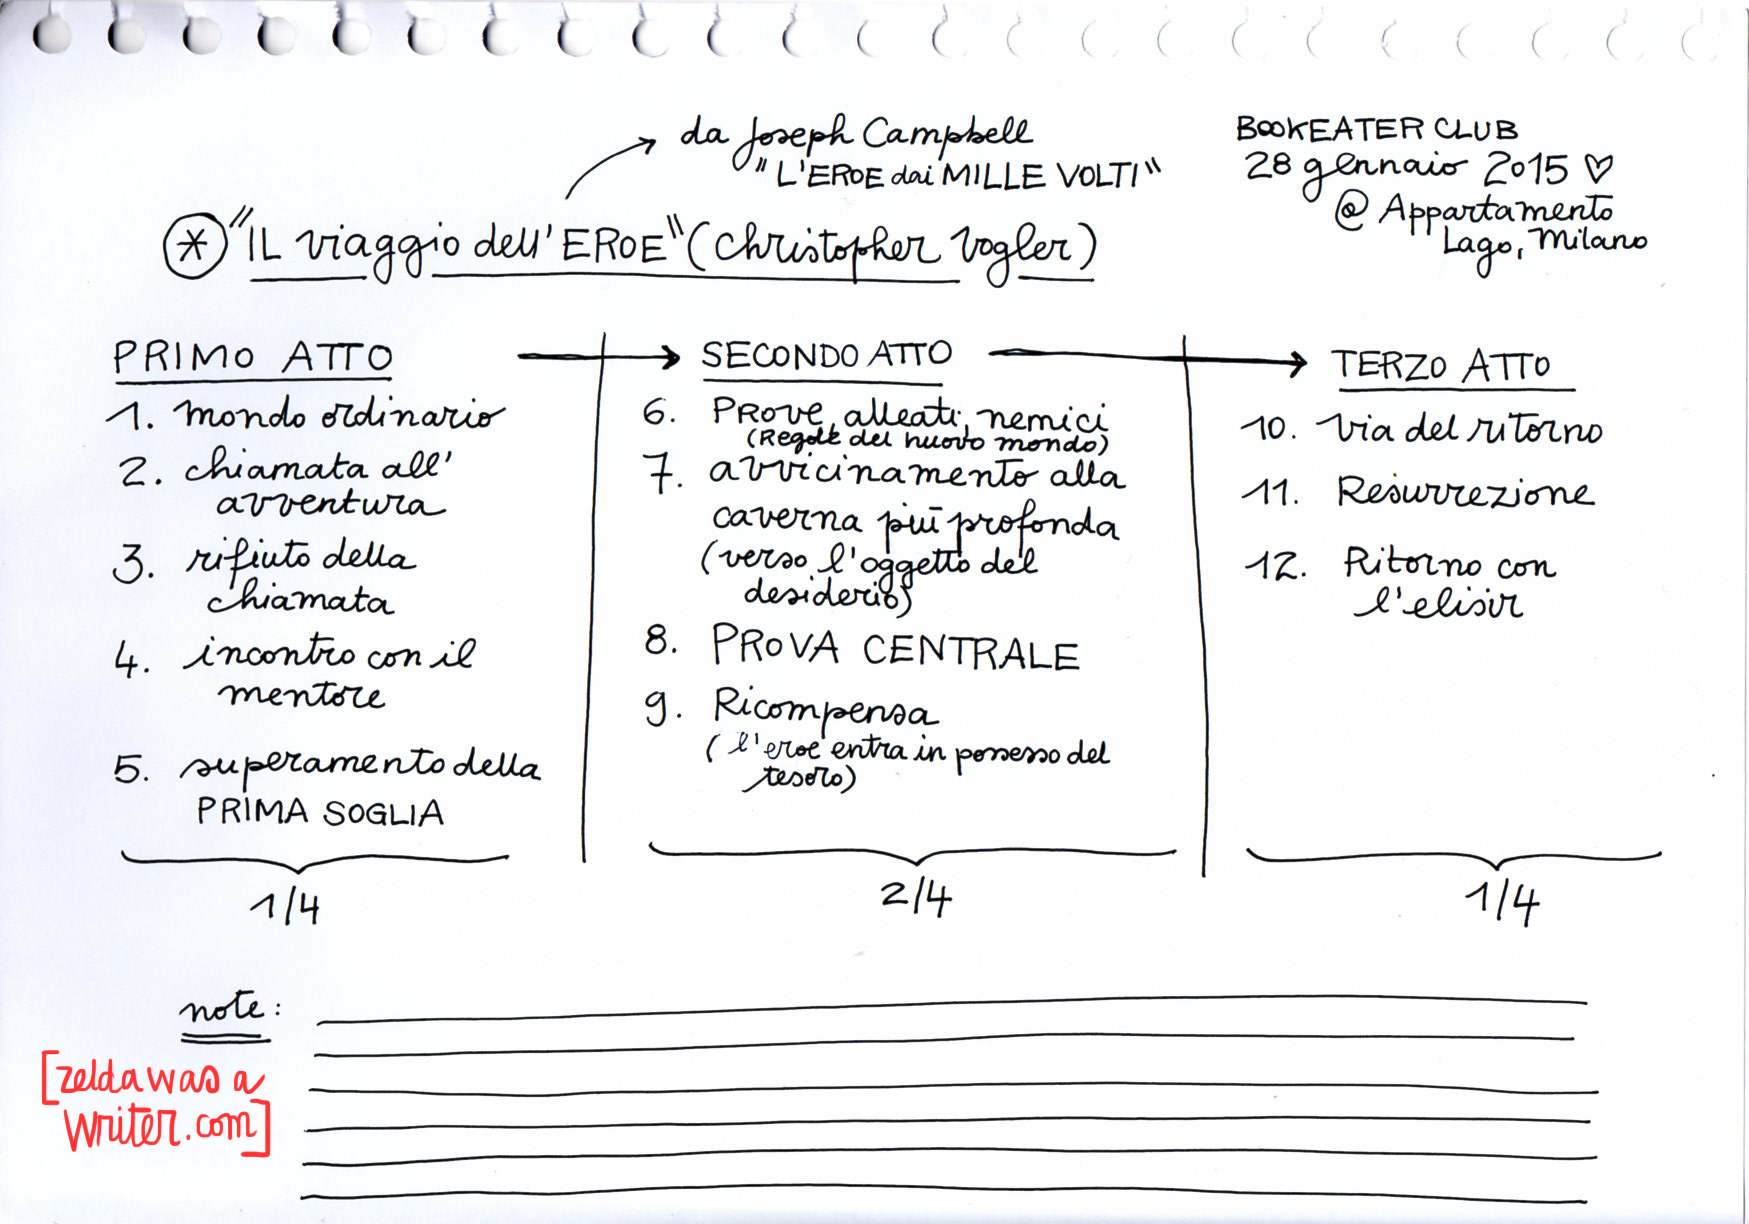 da Joseph Campbell
"L'EROE dai MILLE VOLTI"
BOOKEATER CLUB
28 gennaio 2015 ♡
@ Appartamento
Lago, Milano
* "IL viaggio dell'EROE" (Christopher Vogler)
PRIMO ATTO
1. mondo ordinario
2. chiamata all'
avventura
3. rifiuto della
chiamata
4. incontro con il
mentore
5. superamento della
PRIMA SOGLIA
1/4
SECONDO ATTO
6. PROVE, alleati, nemici
(Regole del nuovo mondo)
7. avvicinamento alla
caverna più profonda
(verso l'oggetto del
desiderio)
8. PROVA CENTRALE
9. Ricompensa
(l'eroe entra in possesso del
tesoro)
2/4
TERZO ATTO
10. via del ritorno
11. Resurrezione
12. Ritorno con
l'elisir
1/4
note:
[zelda was a
writer.com]